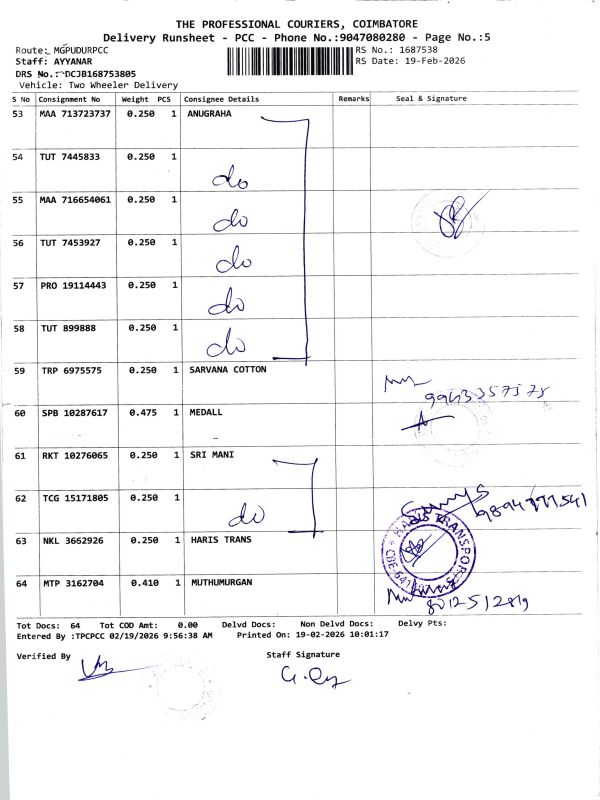 THE PROFESSIONAL COURIERS, COIMBATORE
Delivery Runsheet - PCC - Phone No.:9047080280 - Page No.:5
Route: MGPUDURPCC
RS No.: 1687538
Staff: AYYANAR
RS Date: 19-Feb-2026
DRS No.: DCJB168753805
Vehicle: Two Wheeler Delivery
S No Consignment No Weight PCS Consignee Details Remarks Seal & Signature
53 MAA 713723737 0.250 1 ANUGRAHA
54 TUT 7445833 0.250 1 do
55 MAA 716654061 0.250 1 do
56 TUT 7453927 0.250 1 do
57 PRO 19114443 0.250 1 do
58 TUT 899888 0.250 1 do
59 TRP 6975575 0.250 1 SARVANA COTTON
9943357575
60 SPB 10287617 0.475 1 MEDALL
61 RKT 10276065 0.250 1 SRI MANI
62 TCG 15171805 0.250 1 do
9894777541
63 NKL 3662926 0.250 1 HARIS TRANS
HARIS TRANSPORT
64 MTP 3162704 0.410 1 MUTHUMURGAN
8012512819
Tot Docs: 64 Tot COD Amt: 0.00 Delvd Docs: Non Delvd Docs: Delvy Pts:
Entered By :TPCPCC 02/19/2026 9:56:38 AM Printed On: 19-02-2026 10:01:17
Verified By Staff Signature